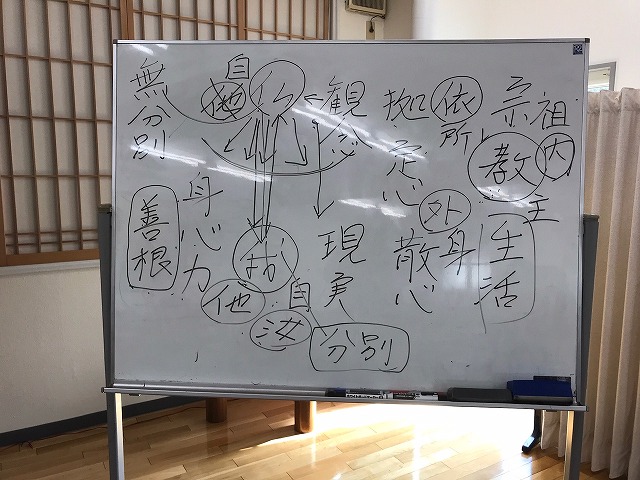 宗祖
教
内
主
生活
依
所
拠
定心
外
身
散心
観念
現実
分別
仏
自
他
自
汝
他
身心力
無分別
善根